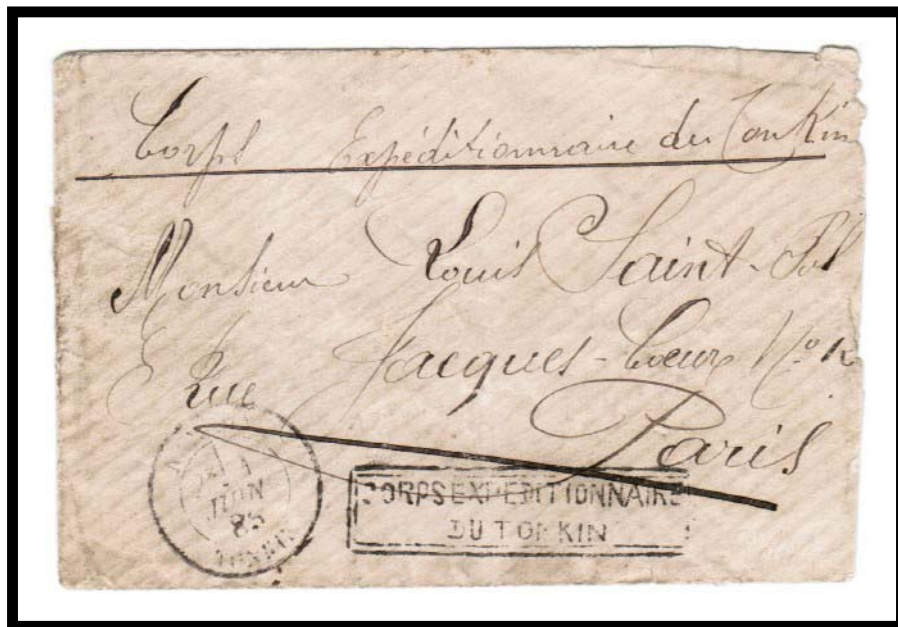 Corps Expéditionnaire du Tonkin
Monsieur Louis Saint-Pol
Rue Jacques-Coeur No 12
Paris
JUIN
85
TONKIN
CORPS EXPEDITIONNAIRE
DU TONKIN